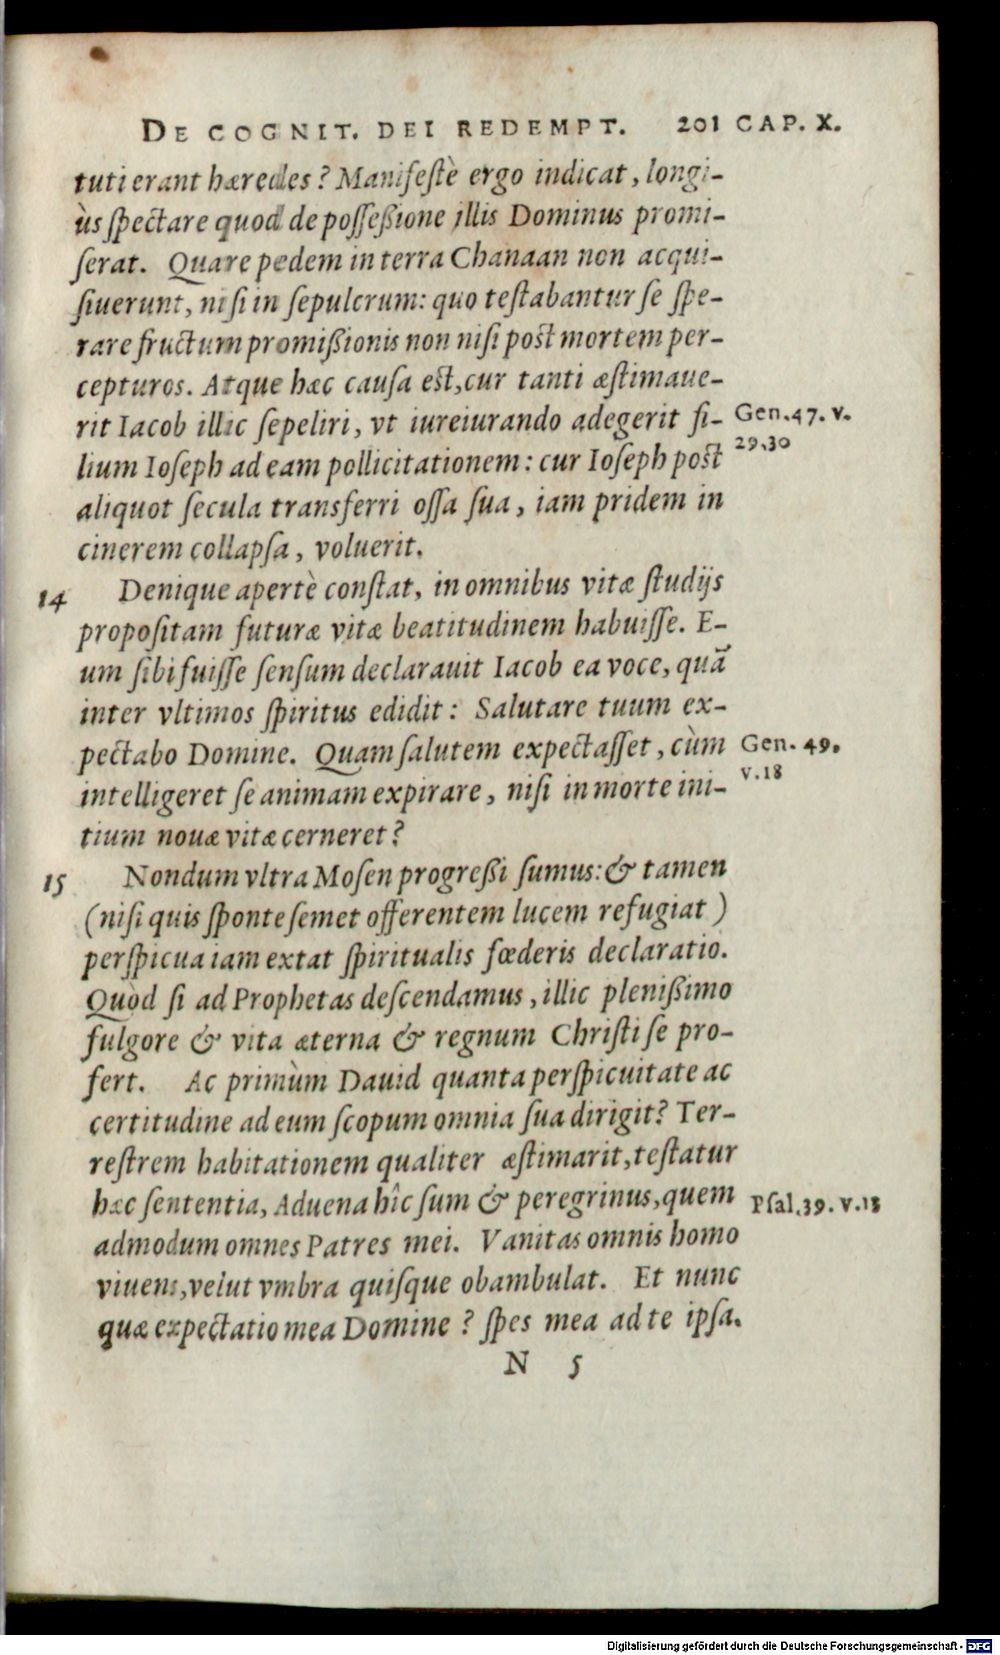 DE COGNIT. DEI REDEMPT. 201 CAP. X.
tuti erant hæredes? Manifestè ergo indicat, longi-
ùs spectare quod de possessione illis Dominus promi-
serat. Quare pedem in terra Chanaan non acqui-
siuerunt, nisi in sepulcrum: quo testabantur se spe-
rare fructum promißionis non nisi post mortem per-
cepturos. Atque hæc causa est, cur tanti æstimaue-
rit Iacob illic sepeliri, vt iureiurando adegerit fi-
Gen. 47. v.
29.30
lium Ioseph ad eam pollicitationem: cur Ioseph post
aliquot secula transferri ossa sua, iam pridem in
cinerem collapsa, voluerit.
14 Denique apertè constat, in omnibus vitæ studijs
propositam futuræ vitæ beatitudinem habuisse. E-
um sibi fuisse sensum declarauit Iacob ea voce, quã
inter vltimos spiritus edidit: Salutare tuum ex-
pectabo Domine. Quam salutem expectasset, cùm
Gen. 49.
v.18
intelligeret se animam expirare, nisi in morte ini-
tium nouæ vitæ cerneret?
15 Nondum vltra Mosen progreßi sumus: & tamen
(nisi quis sponte semet offerentem lucem refugiat)
perspicua iam extat spiritualis fœderis declaratio.
Quòd si ad Prophetas descendamus, illic plenißimo
fulgore & vita æterna & regnum Christi se pro-
fert. Ac primùm Dauid quanta perspicuitate ac
certitudine ad eum scopum omnia sua dirigit? Ter-
restrem habitationem qualiter æstimarit, testatur
hæc sententia, Aduena hîc sum & peregrinus, quem
Psal. 39. v.13
admodum omnes Patres mei. Vanitas omnis homo
viuens, velut vmbra quisque obambulat. Et nunc
quæ expectatio mea Domine? spes mea ad te ipsa.
N 5
Digitalisierung gefördert durch die Deutsche Forschungsgemeinschaft - DFG